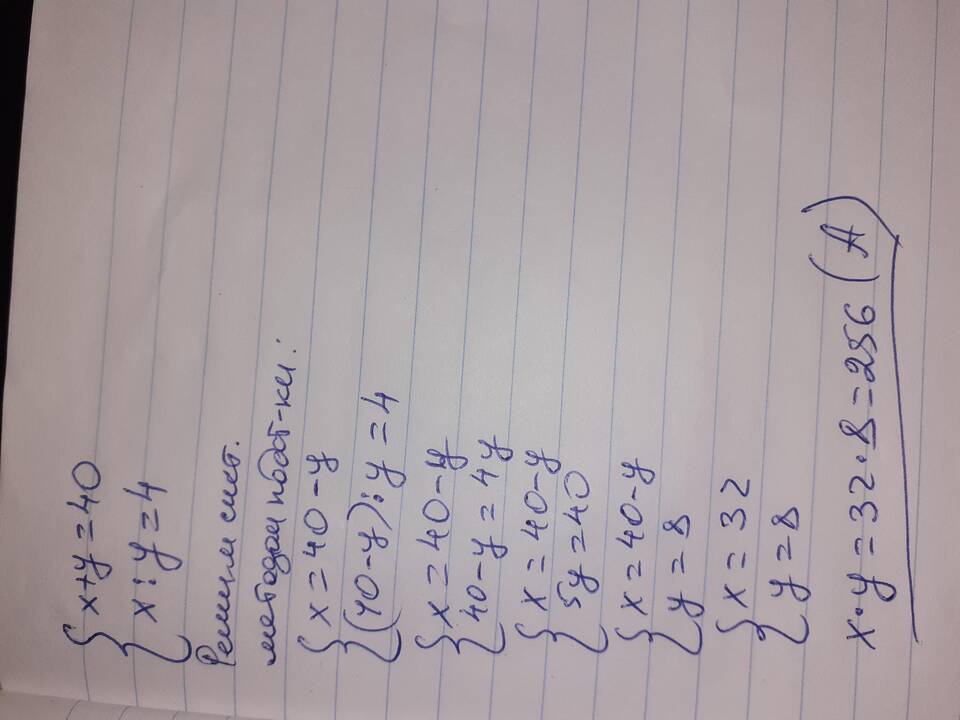 {x+y=40
{x:y=4
Решим сист.
методом подст-ки:
{x=40-y
{(40-y):y=4
{x=40-y
{40-y=4y
{x=40-y
{5y=40
{x=40-y
{y=8
{x=32
{y=8
x·y=32·8=256 (A)